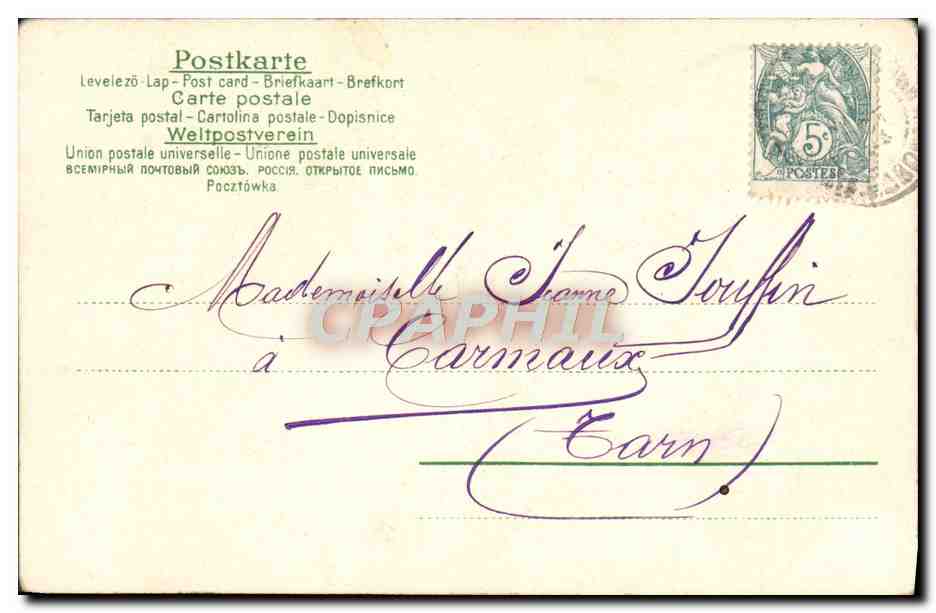 Postkarte
Levelező-Lap - Post card - Briefkaart - Brefkort
Carte postale
Tarjeta postal - Cartolina postale - Dopisnice
Weltpostverein
Union postale universelle - Unione postale universale
ВСЕМІРНЫЙ ПОЧТОВЫЙ СОЮЗЪ. РОССІЯ. ОТКРЫТОЕ ПИСЬМО.
Pocztówka.
5c
POSTES
Mademoiselle Jeanne Jouffin
CPAPHIL
à Carmaux
(Tarn)